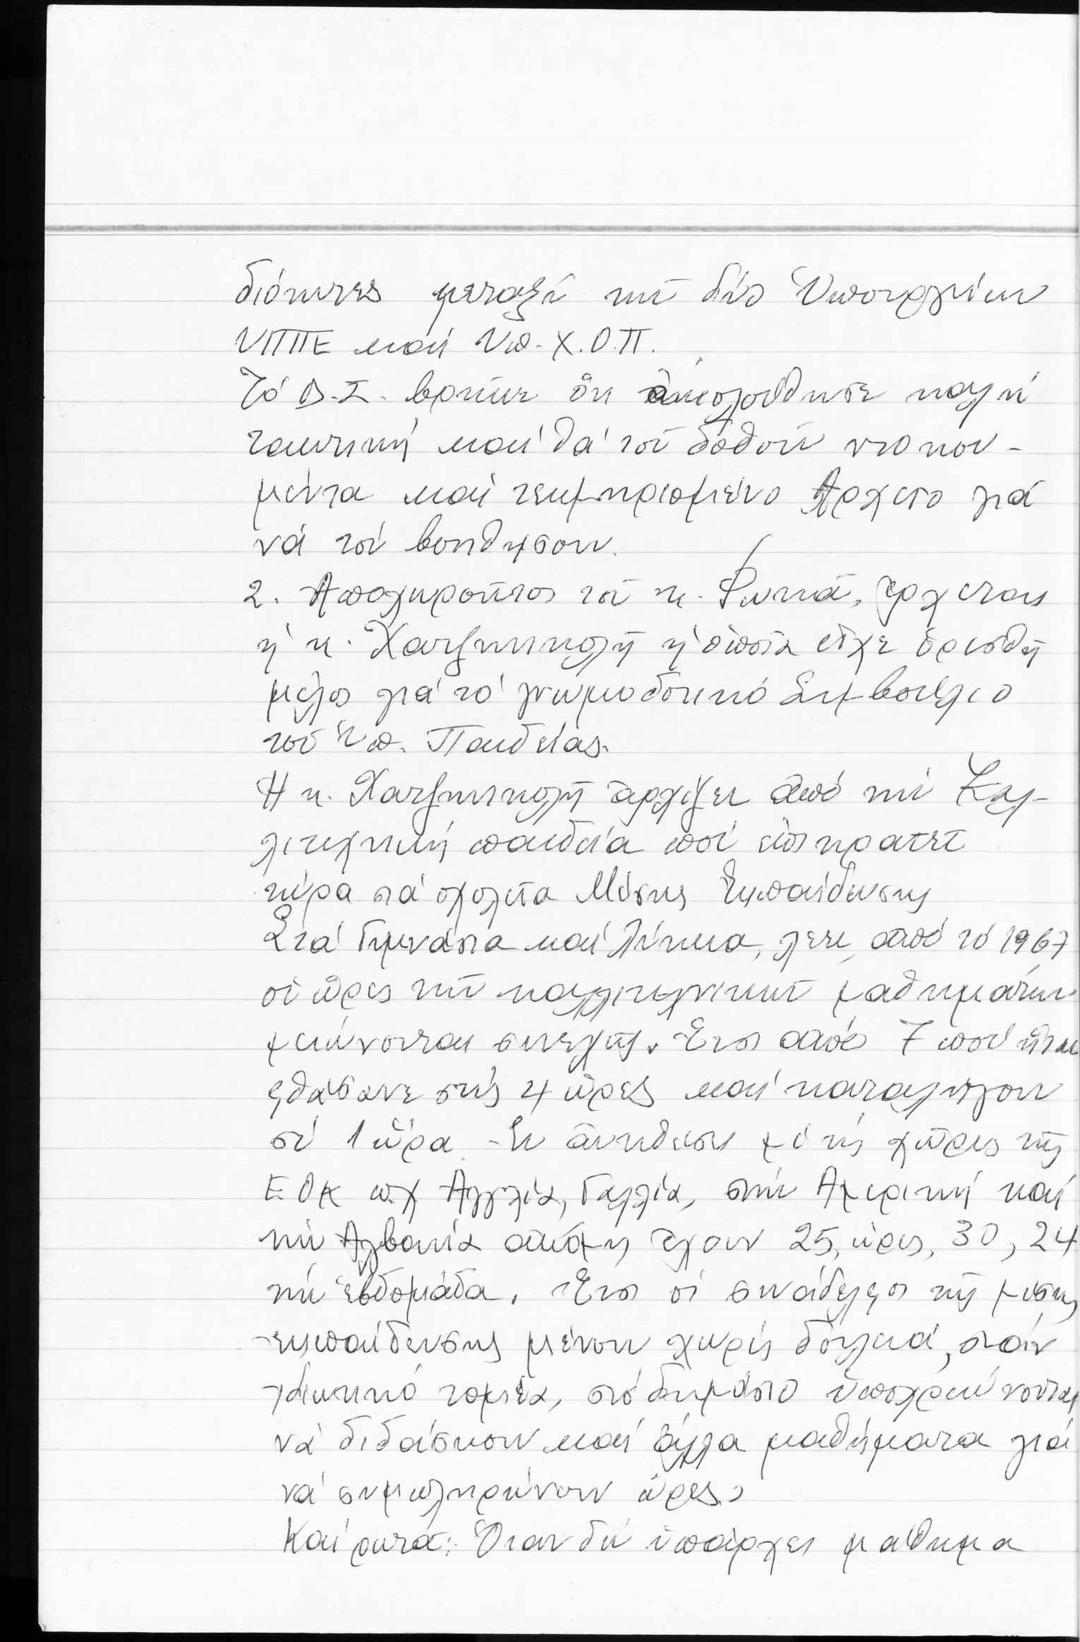 διότητες μεταξύ τῶν δύο Ὑπουργείων
ΥΠΠΕ καί Υπ. Χ.Ο.Π.
Τό Δ.Σ. βρῆκε ὅτι ἀκολούθησε καλή
τακτική καί θά τοῦ δοθοῦν ντοκου-
μέντα καί τεκμηριωμένο Ἀρχεῖο γιά
νά τόν βοηθήσουν.
2. Ἀποχωροῦντος τοῦ κ. Φωκᾶ, ἔρχεται
ἡ κ. Χατζηνικολῆ ἡ ὁποία εἶχε ὁρισθῆ
μέλος γιά τό γνωμοδοτικό Συμβούλιο
τοῦ Ὑπ. Παιδείας.
Η κ. Χατζηνικολῆ ἀρχίζει ἀπό τήν Καλ-
λιτεχνική παιδεία πού ἐπικρατεῖ
τώρα στά σχολεῖα Μέσης Ἐκπαίδευσης
Στά Γυμνάσια καί Λύκεια, λέει, ἀπό τό 1967
οἱ ὧρες τῶν καλλιτεχνικῶν μαθημάτων
μειώνονται συνεχῶς. Ἔτσι ἀπό 7 πού ἦταν
φθάσανε στίς 4 ὧρες καί καταλήγουν
σέ 1 ὥρα. Ἐν ἀντιθέσει μέ τίς χῶρες τῆς
ΕΟΚ π.χ Ἀγγλία, Γαλλία, στήν Ἀμερική καί
τήν Ἀλβανία ἀκόμη ἔχουν 25, ὧρες, 30, 24
τήν ἑβδομάδα. Ἔτσι οἱ συνάδελφοι τῆς μέσης
ἐκπαίδευσης μένουν χωρίς δουλειά, στόν
ἰδιωτικό τομέα, στό δημόσιο ὑποχρεώνονται
νά διδάσκουν καί ἄλλα μαθήματα γιά
νά συμπληρώνουν ὧρες.
Καί ρωτᾶ: Ὅταν δέν ὑπάρχει μάθημα